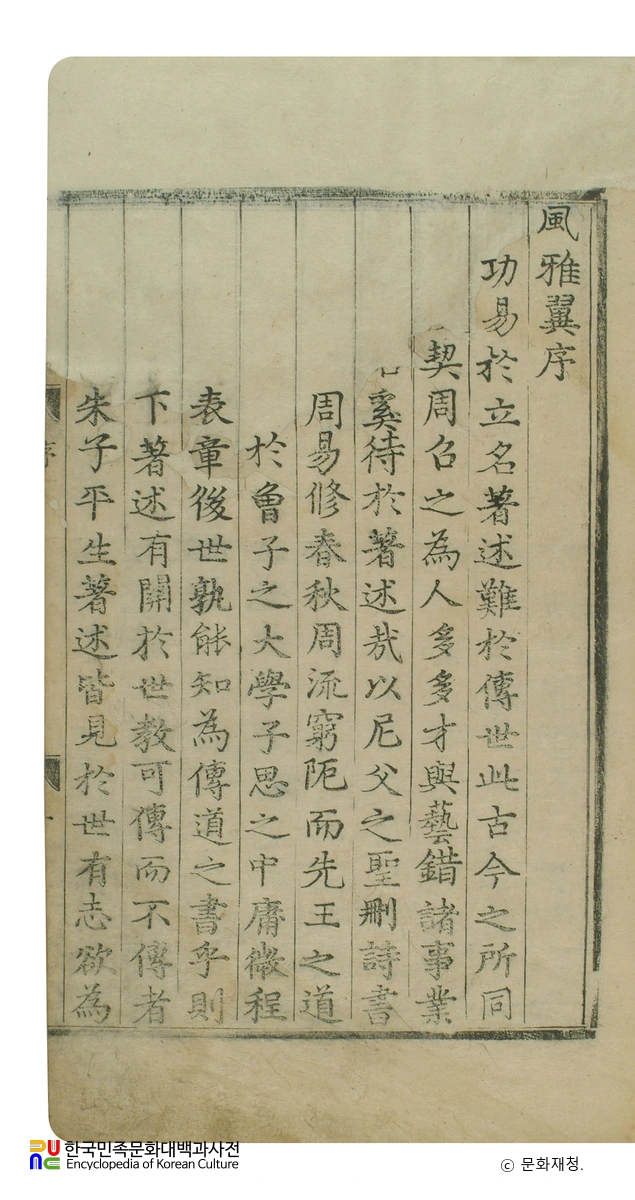 風雅翼序
功易於立名著述難於傳世此古今之所同
契周召之為人多多才與藝錯諸事業
奚待於著述㢤以尼父之聖刪詩書
周易修春秋周流窮阨而先王之道
於魯子之大學子思之中庸微程
表章後世孰能知為傳道之書乎則
下著述有關於世教可傳而不傳者
朱子平生著述皆見於世有志欲為
序
한국민족문화대백과사전
Encyclopedia of Korean Culture
© 문화재청.